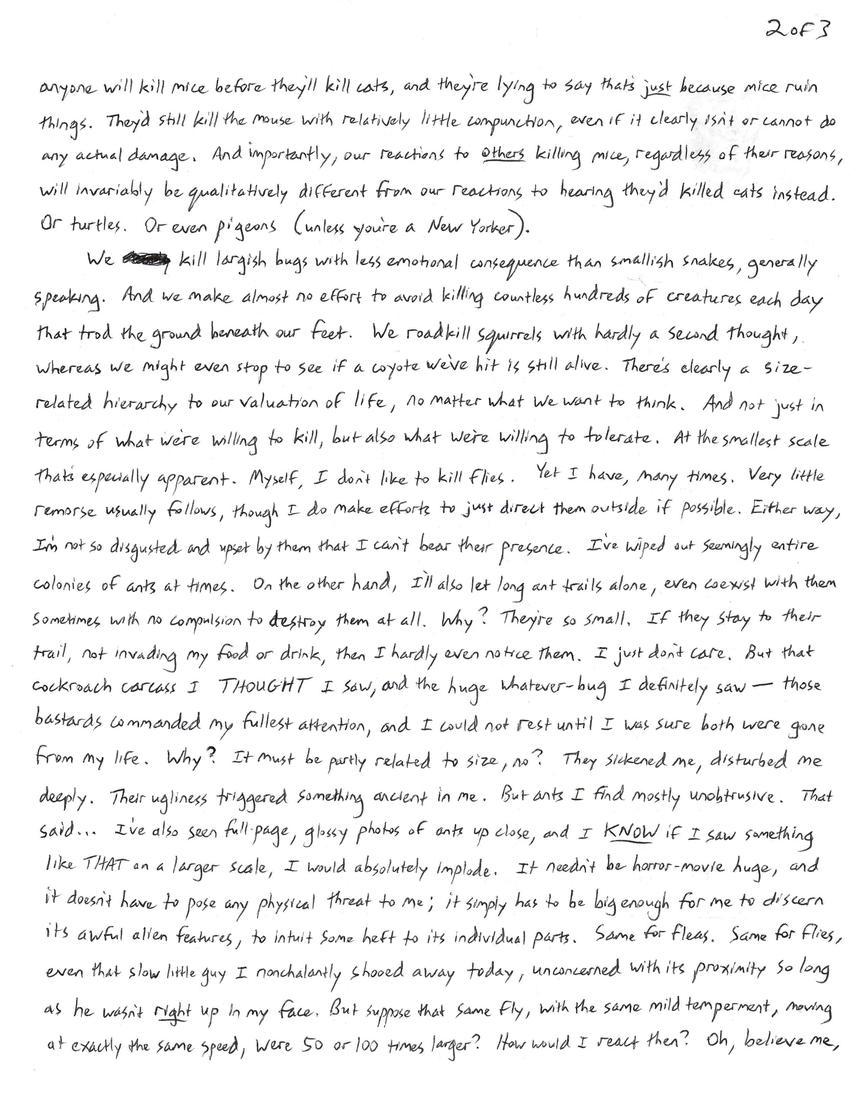 2 of 3
anyone will kill mice before they'll kill cats, and they're lying to say that's just because mice ruin
things. They'd still kill the mouse with relatively little compunction, even if it clearly isn't or cannot do
any actual damage. And importantly, our reactions to others killing mice, regardless of their reasons,
will invariably be qualitatively different from our reactions to hearing they'd killed cats instead.
Or turtles. Or even pigeons (unless you're a New Yorker).
We kill largish bugs with less emotional consequence than smallish snakes, generally
speaking. And we make almost no effort to avoid killing countless hundreds of creatures each day
that trod the ground beneath our feet. We roadkill squirrels with hardly a second thought,
whereas we might even stop to see if a coyote we've hit is still alive. There's clearly a size-
related hierarchy to our valuation of life, no matter what we want to think. And not just in
terms of what we're willing to kill, but also what we're willing to tolerate. At the smallest scale
that's especially apparent. Myself, I don't like to kill flies. Yet I have, many times. Very little
remorse usually follows, though I do make efforts to just direct them outside if possible. Either way,
I'm not so disgusted and upset by them that I can't bear their presence. I've wiped out seemingly entire
colonies of ants at times. On the other hand, I'll also let long ant trails alone, even coexist with them
sometimes with no compulsion to destroy them at all. Why? They're so small. If they stay to their
trail, not invading my food or drink, then I hardly even notice them. I just don't care. But that
cockroach carcass I THOUGHT I saw, and the huge whatever-bug I definitely saw — those
bastards commanded my fullest attention, and I could not rest until I was sure both were gone
from my life. Why? It must be partly related to size, no? They sickened me, disturbed me
deeply. Their ugliness triggered something ancient in me. But ants I find mostly unobtrusive. That
said... I've also seen full-page, glossy photos of ants up close, and I KNOW if I saw something
like THAT on a larger scale, I would absolutely implode. It needn't be horror-movie huge, and
it doesn't have to pose any physical threat to me; it simply has to be big enough for me to discern
its awful alien features, to intuit some heft to its individual parts. Same for fleas. Same for flies,
even that slow little guy I nonchalantly shooed away today, unconcerned with its proximity so long
as he wasn't right up in my face. But suppose that same fly, with the same mild temperment, moving
at exactly the same speed, were 50 or 100 times larger? How would I react then? Oh, believe me,